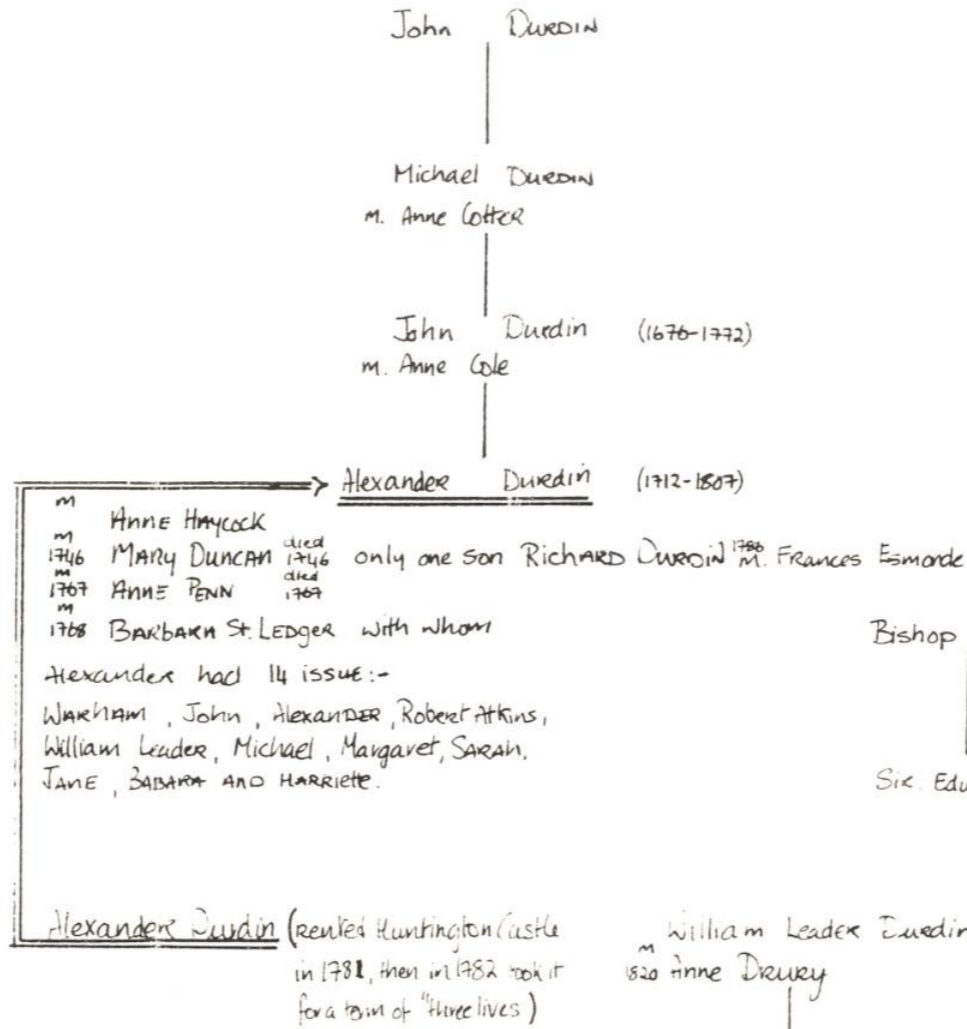 John DURDIN
Michael DURDIN
m. Anne Cotter
John Durdin (1676-1772)
m. Anne Cole
Alexander Durdin (1712-1807)
m
ANNE HAYCOCK
m
1746 MARY DUNCAN died 1746 only one son RICHARD DURDIN 1786 M. Frances Esmorde
m
1767 ANNE PENN died 1767
m
1768 BARBARA St. LEDGER with whom
Bishop
Alexander had 14 issue:-
WARHAM, John, ALEXANDER, Robert Atkins,
William Leader, Michael, Margaret, SARAH,
JANE, BABARA AND HARRIETTE.
Sir. Edw
Alexander Durdin (rented Huntington Castle
in 1781, then in 1782 took it
for a term of "three lives)
William Leader Durdin
m
1820 Anne DRURY